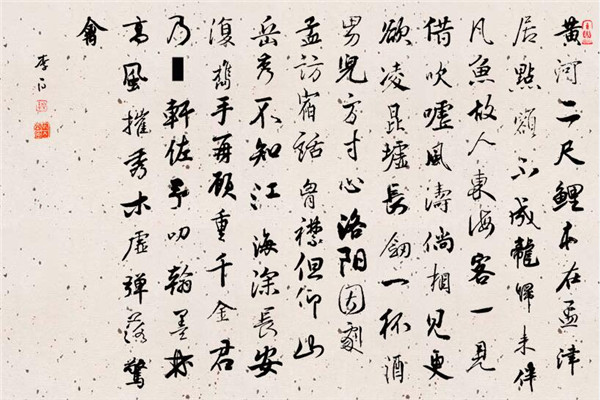 黄河二尺鲤本在孟津
居點額不成龍歸来伴
凡魚故人東海客一見
借吹嘘風濤倘相見更
欲凌昆墟長劍一杯酒
男兒方寸心洛阳因劇
孟訪宿話胷襟但仰山
岳秀不知江海深長安
復攜手再顾重千金君
乃■軒佐予叨翰墨林
高風摧秀木虚弹落驚
禽
李白